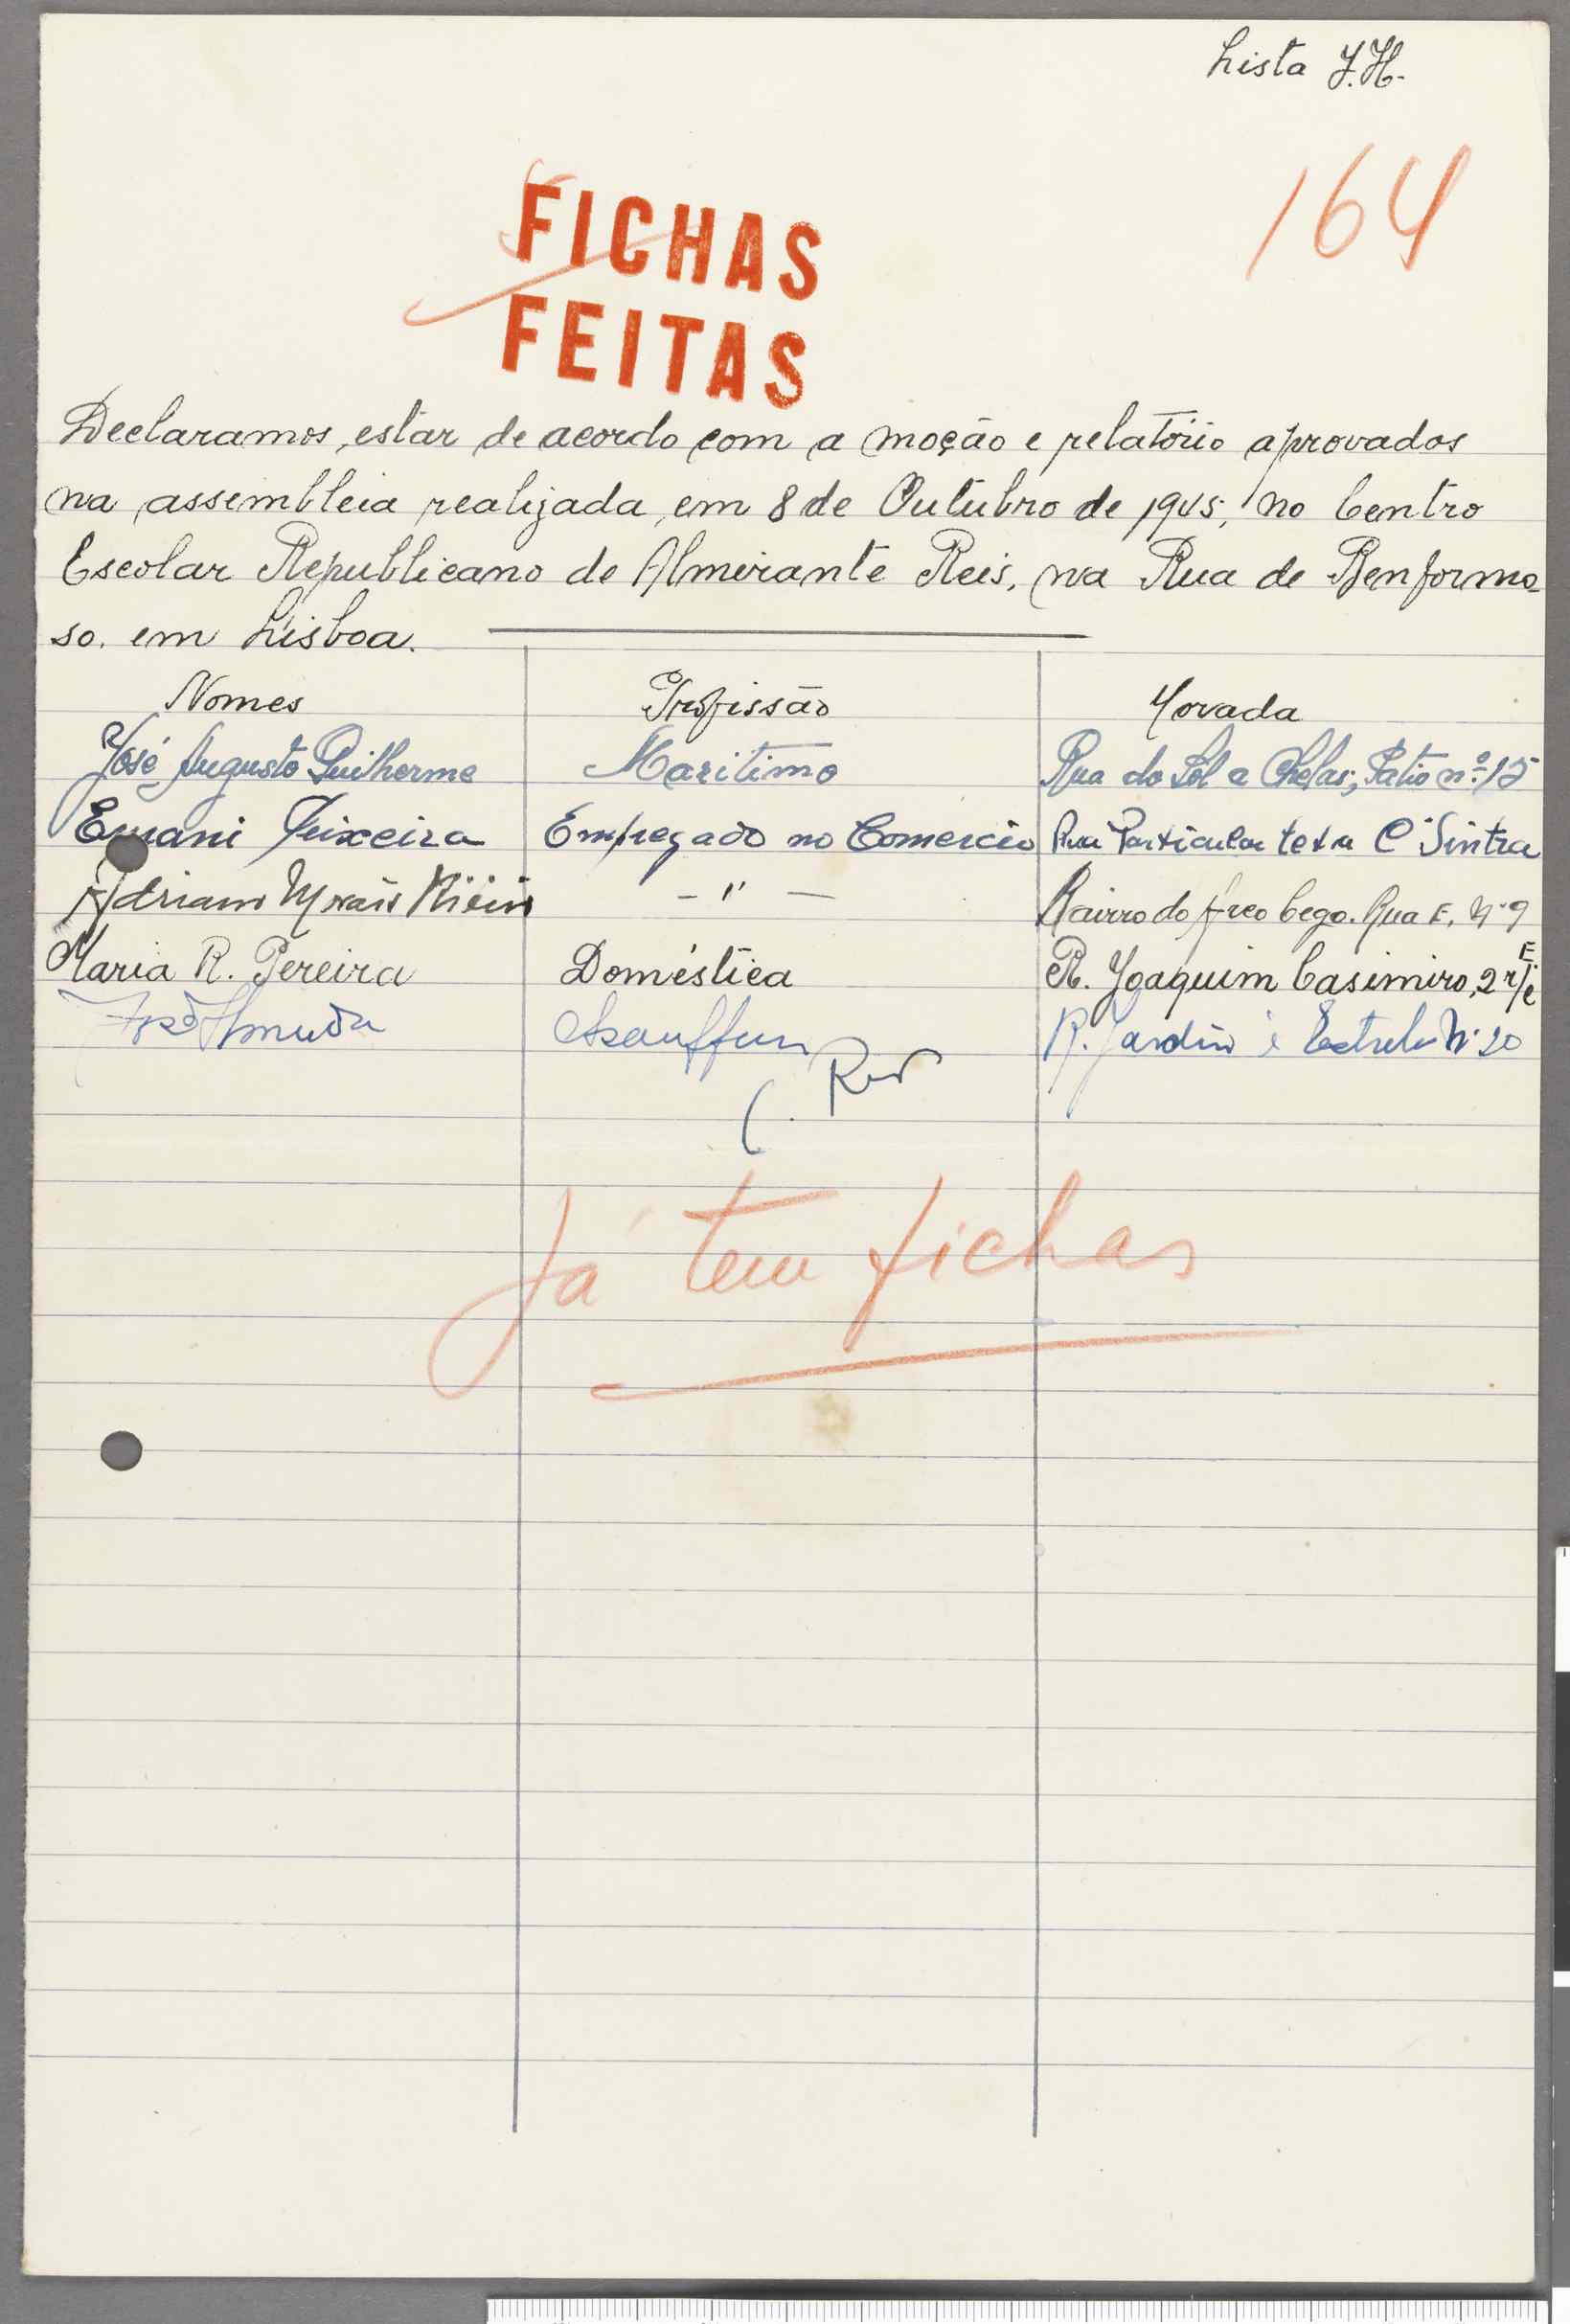 Lista J.H.
164
FICHAS
FEITAS
Declaramos, estar de acordo com a moção e relatório aprovados
na assembleia realizada, em 8 de Outubro de 1945, no Centro
Escolar Republicano de Almirante Reis, na Rua de Benformo-
so. em Lisboa.
Nomes Profissão Morada
José Augusto Guilherme Maritimo Rua do Sol a Chelas, Patio nº 15
Ernani Teixeira Empregado no Comercio Rua Particular C Sintra
Adriano Morais - " - Bairro do Arco Cego. Rua E, Nº 9
Maria R. Pereira Doméstica R. Joaquim Casimiro, 2 r/c E
José R. Jardim Estrela Nº 20
Já tem fichas